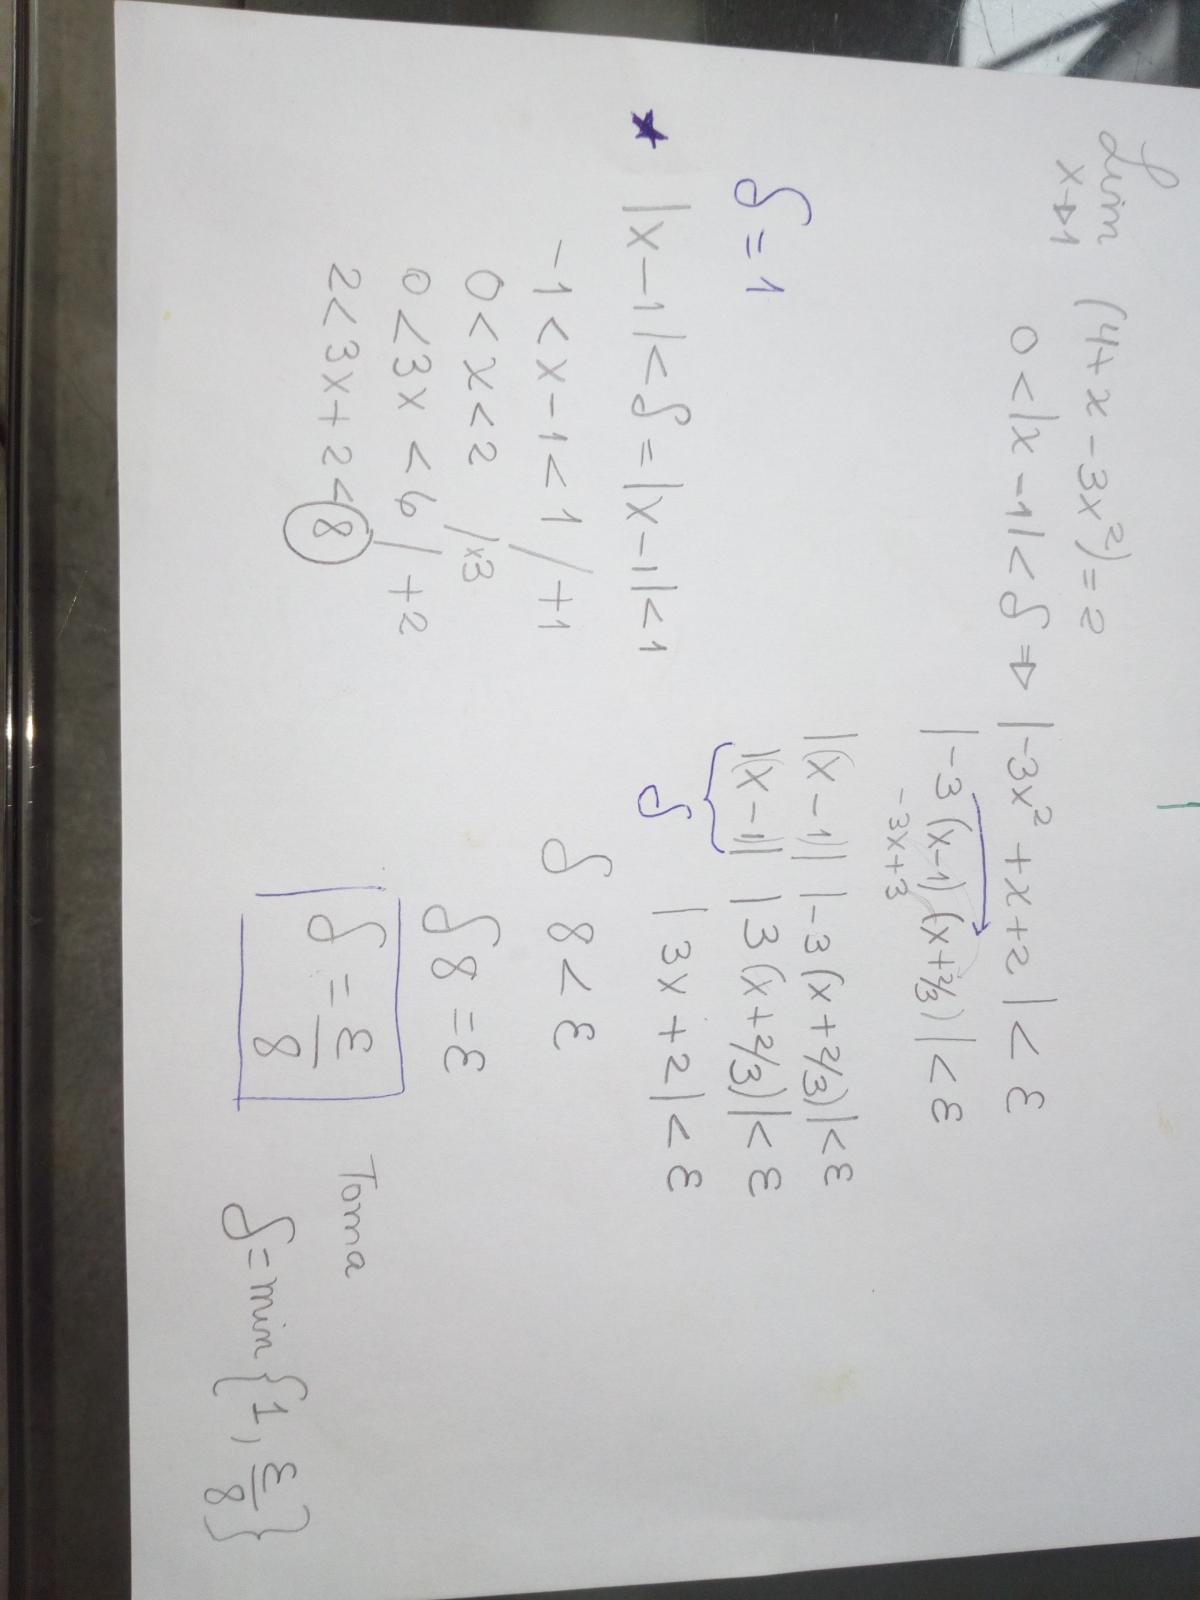 Lim (4+x-3x²)=2
x→1
0<|x-1|<δ ⇒ |-3x²+x+2|<ε
|-3(x-1)(x+2/3)|<ε
-3x+3
|(x-1)||-3(x+2/3)|<ε
δ=1
|(x-1)||3(x+2/3)|<ε
δ |3x+2|<ε
★ |x-1|<δ=|x-1|<1
-1<x-1<1 /+1
0<x<2 /x3
0<3x<6 /+2
2<3x+2<8
δ8<ε
δ8=ε
δ=ε/8
Toma
δ=min{1, ε/8}